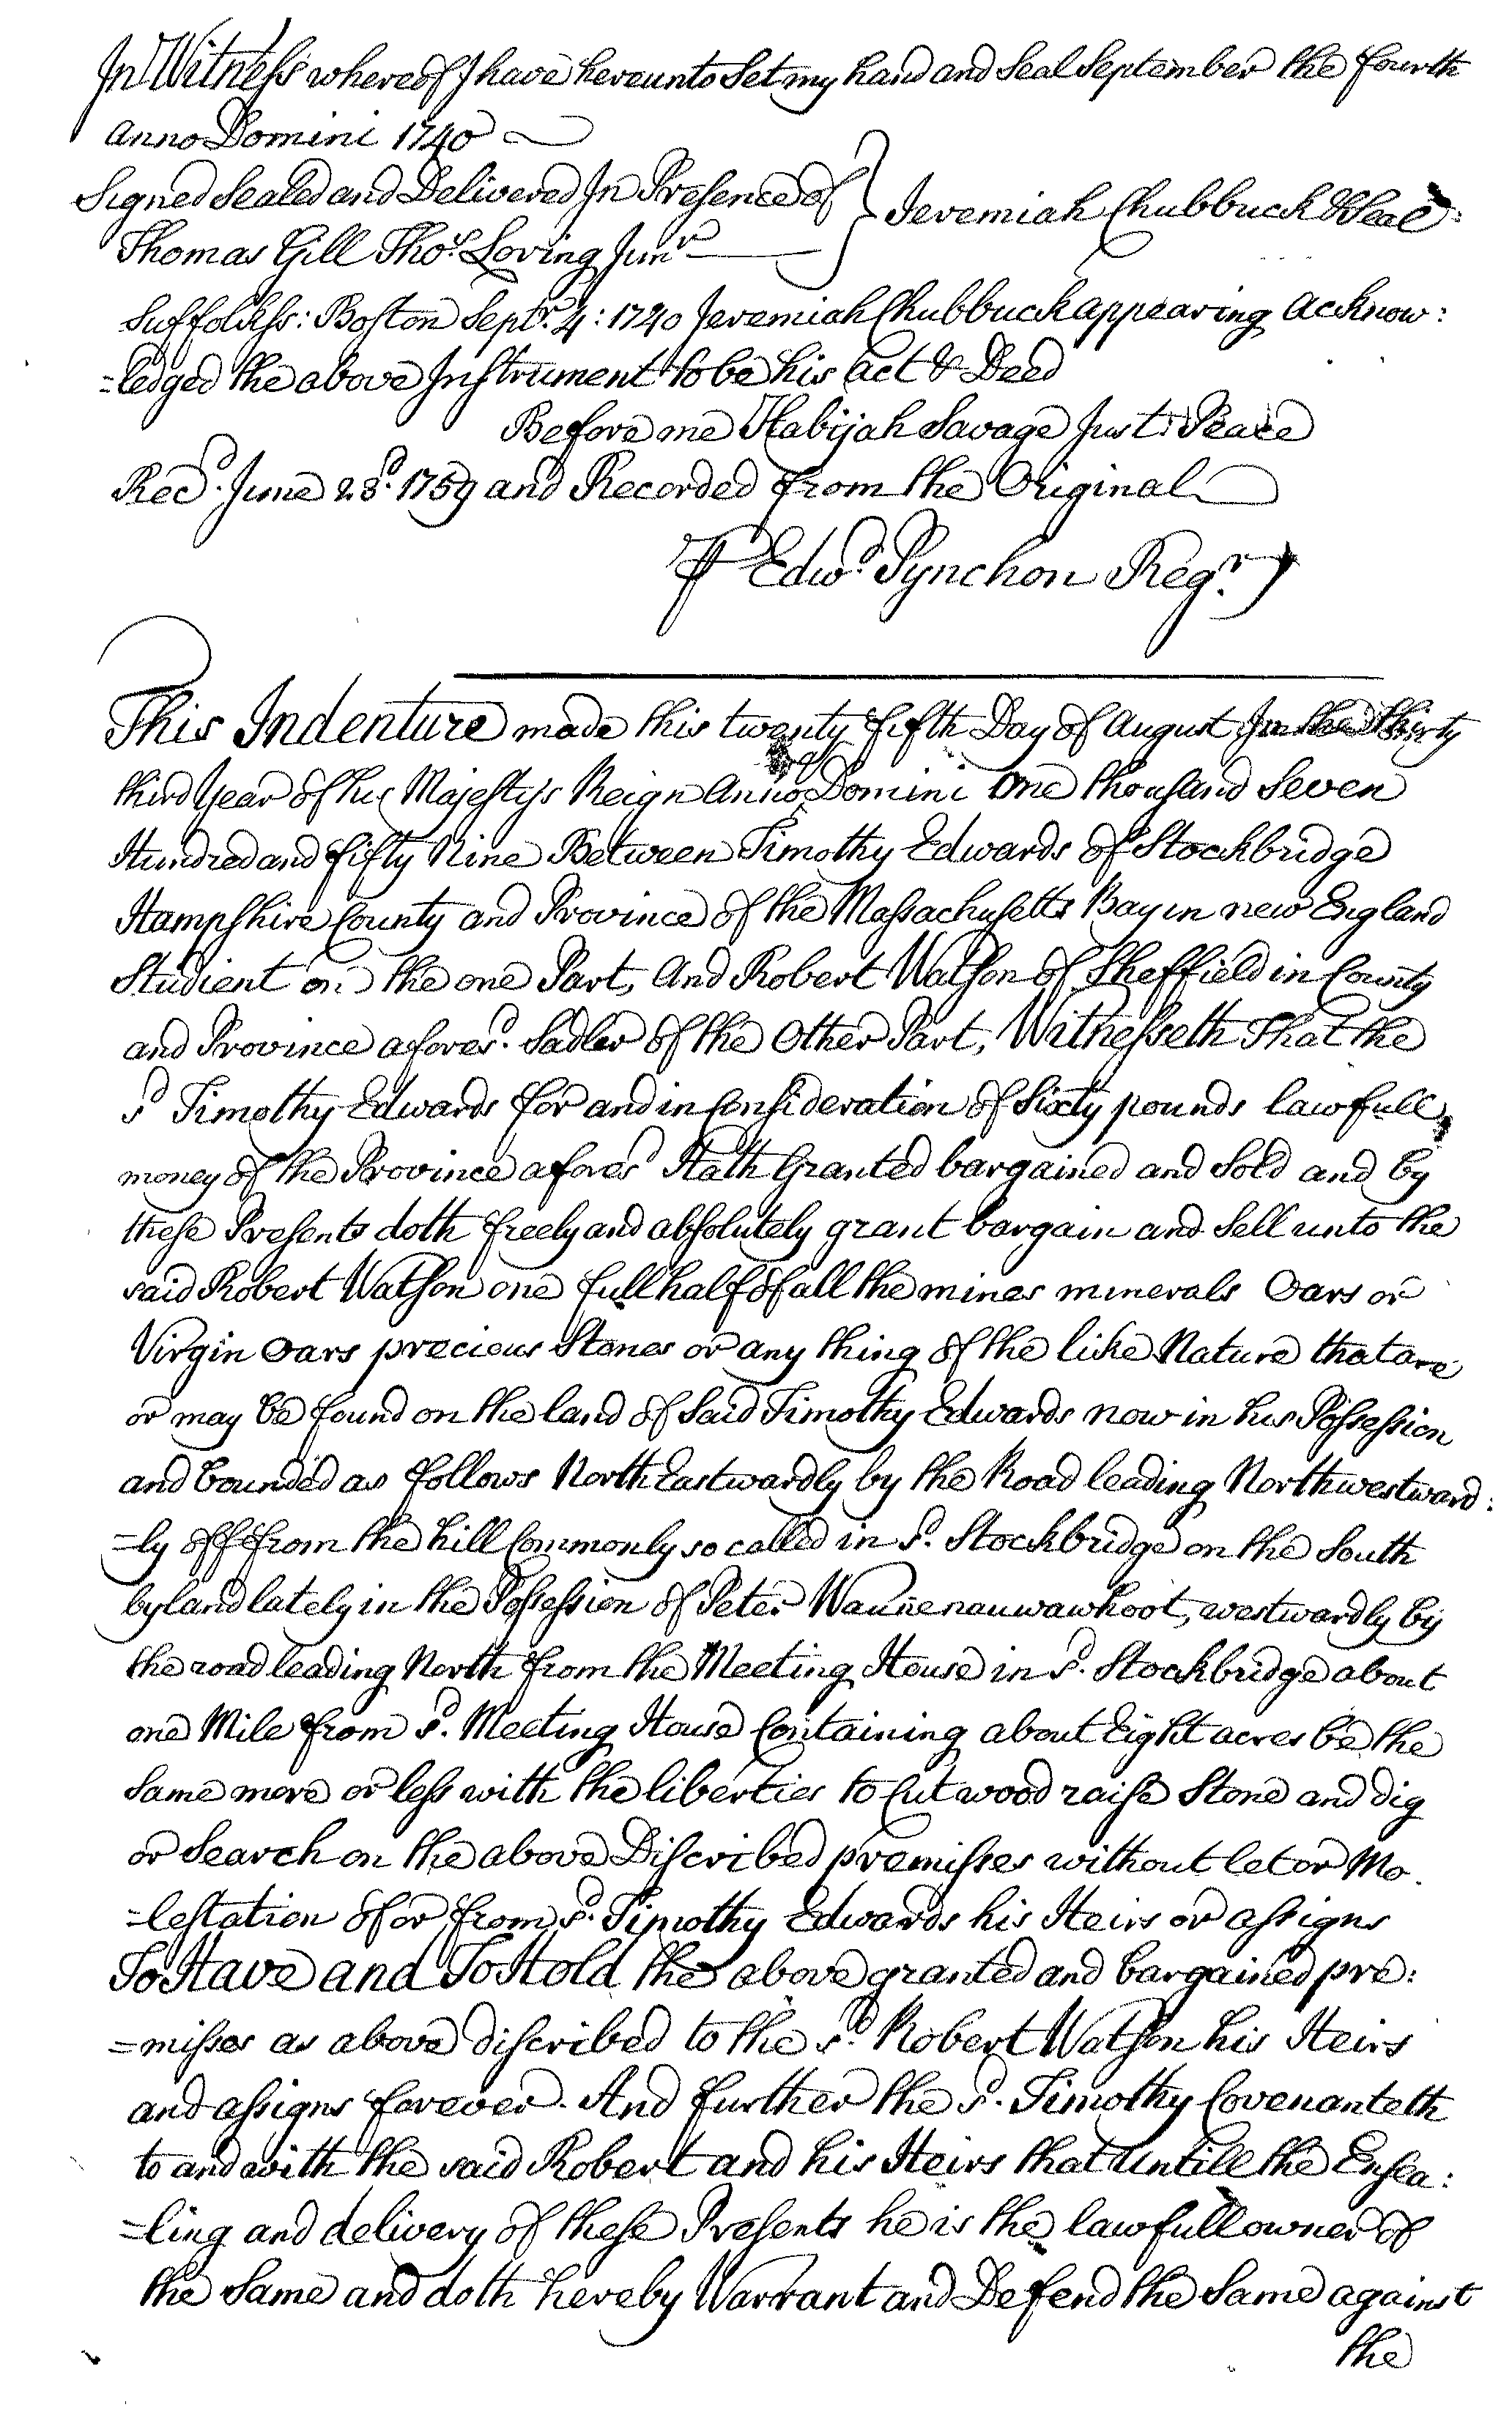 In Witness whereof I have hereunto Set my hand and Seal September the fourth
Anno Domini 1740
Signed Sealed and Delivered In Presence of } Jeremiah Chubbuck & Seal:
Thomas Gill Thos. Loving Junr
Suffolk ss: Boston Septr. 4: 1740 Jeremiah Chubbuck appearing Acknow:
=ledged the above Instrument to be his Act & Deed
Before me Habijah Savage Just: Peace
Recd. June 28d. 1759 and Recorded from the Original
P Edwd. Pynchon Regr.
This Indenture made this twenty fifth Day of August In the thirty
third Year of his Majestys Reign Anno Domini One thousand Seven
Hundred and fifty Nine Between Timothy Edwards of Stockbridge
Hampshire County and Province of the Massachusetts Bay in new England
Studient on the one Part, And Robert Watson of Sheffield in County
and Province afores'd. Sadler of the Other Part, Witnesseth That the
sd Timothy Edwards for and in Consideration of Sixty pounds lawfull
money of the Province aforesd Hath Granted bargained and Sold and by
these Presents doth freely and absolutely grant bargain and Sell unto the
said Robert Watson one full half of all the mines minerals Oars or
Virgin Oars precious Stones or any thing of the like Nature that are
or may be found on the land of Said Timothy Edwards now in his Possession
and bounded as follows North Eastwardly by the Road leading Northwestward:
=ly off from the hill Commonly so called in sd. Stockbridge on the South
by land lately in the Possession of Peter Waunenauwawhoot, westwardly by
the road leading North from the Meeting House in sd. Stockbridge about
one Mile from sd. Meeting House Containing about Eight acres be the
Same more or less with the liberties to Cut wood raise Stone and dig
or Search on the above Discribed premisses without let or Mo
=lestation of or from sd. Timothy Edwards his Heirs or assigns
To Have and To Hold the above granted and bargained pre:
=misses as above discribed to the sd. Robert Watson his Heirs
and assigns forever. And further the sd. Timothy Covenanteth
to and with the said Robert and his Heirs that Untill the Ensea:
=ling and delivery of these Presents he is the lawfull owner of
the Same and doth hereby Warrant and Defend the Same against
the